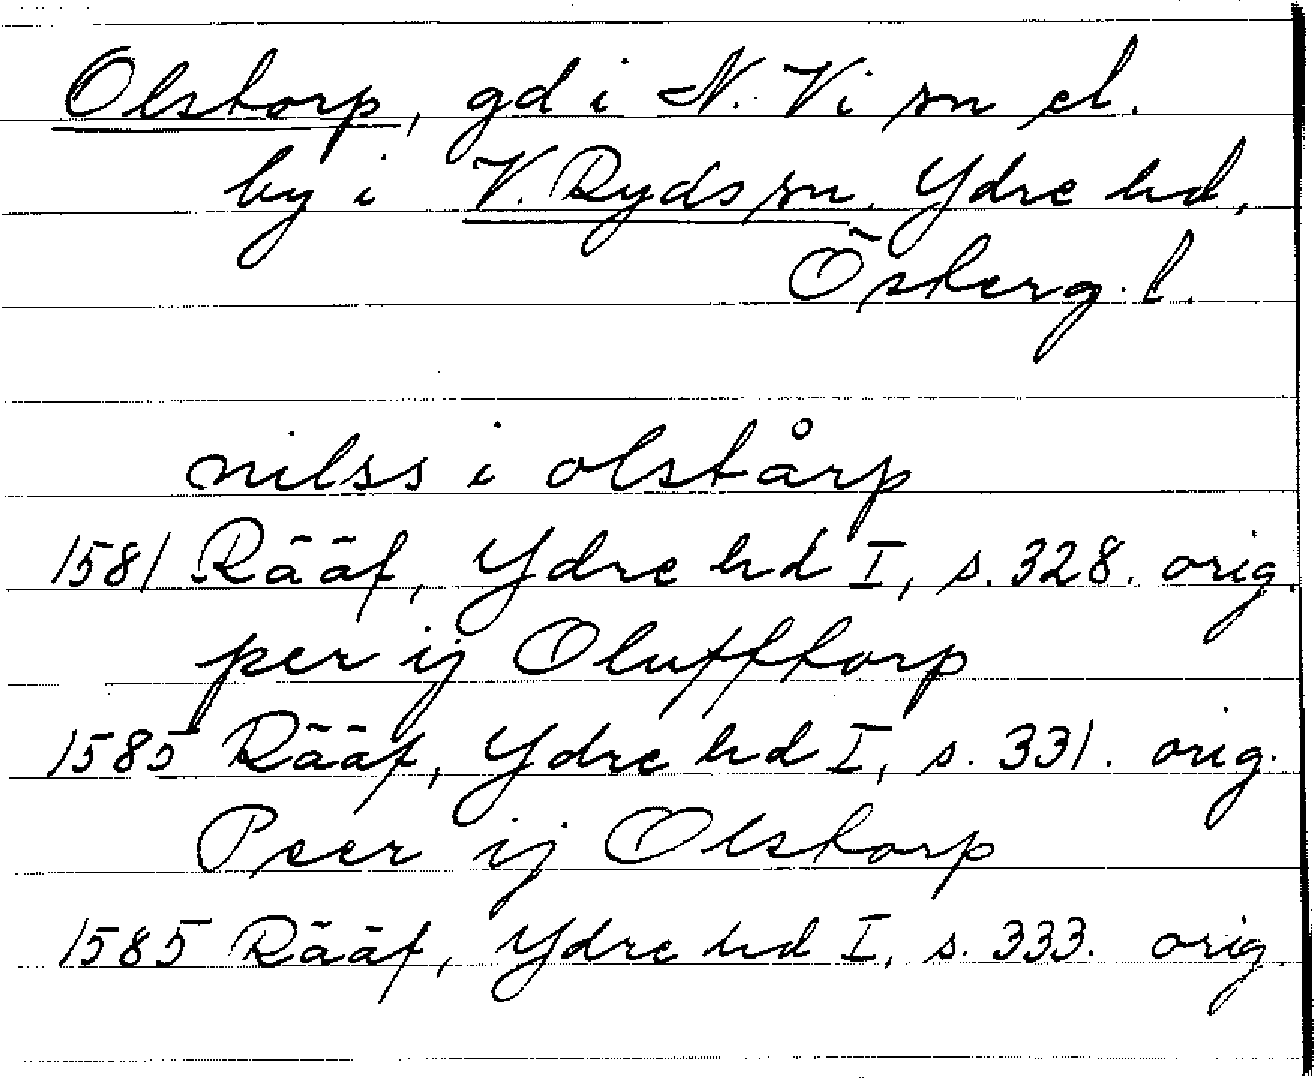 Olstorp, gd i N. Vi sn el.
by i V. Ryds sn, Ydre hd,
Österg. l.
nilss i olstårp
1581 Rääf, Ydre hd I, s. 328. orig.
per ij Olufftorp
1585 Rääf, Ydre hd I, s. 331. orig.
Peer ij Olstorp
1585 Rääf, Ydre hd I, s. 333. orig.